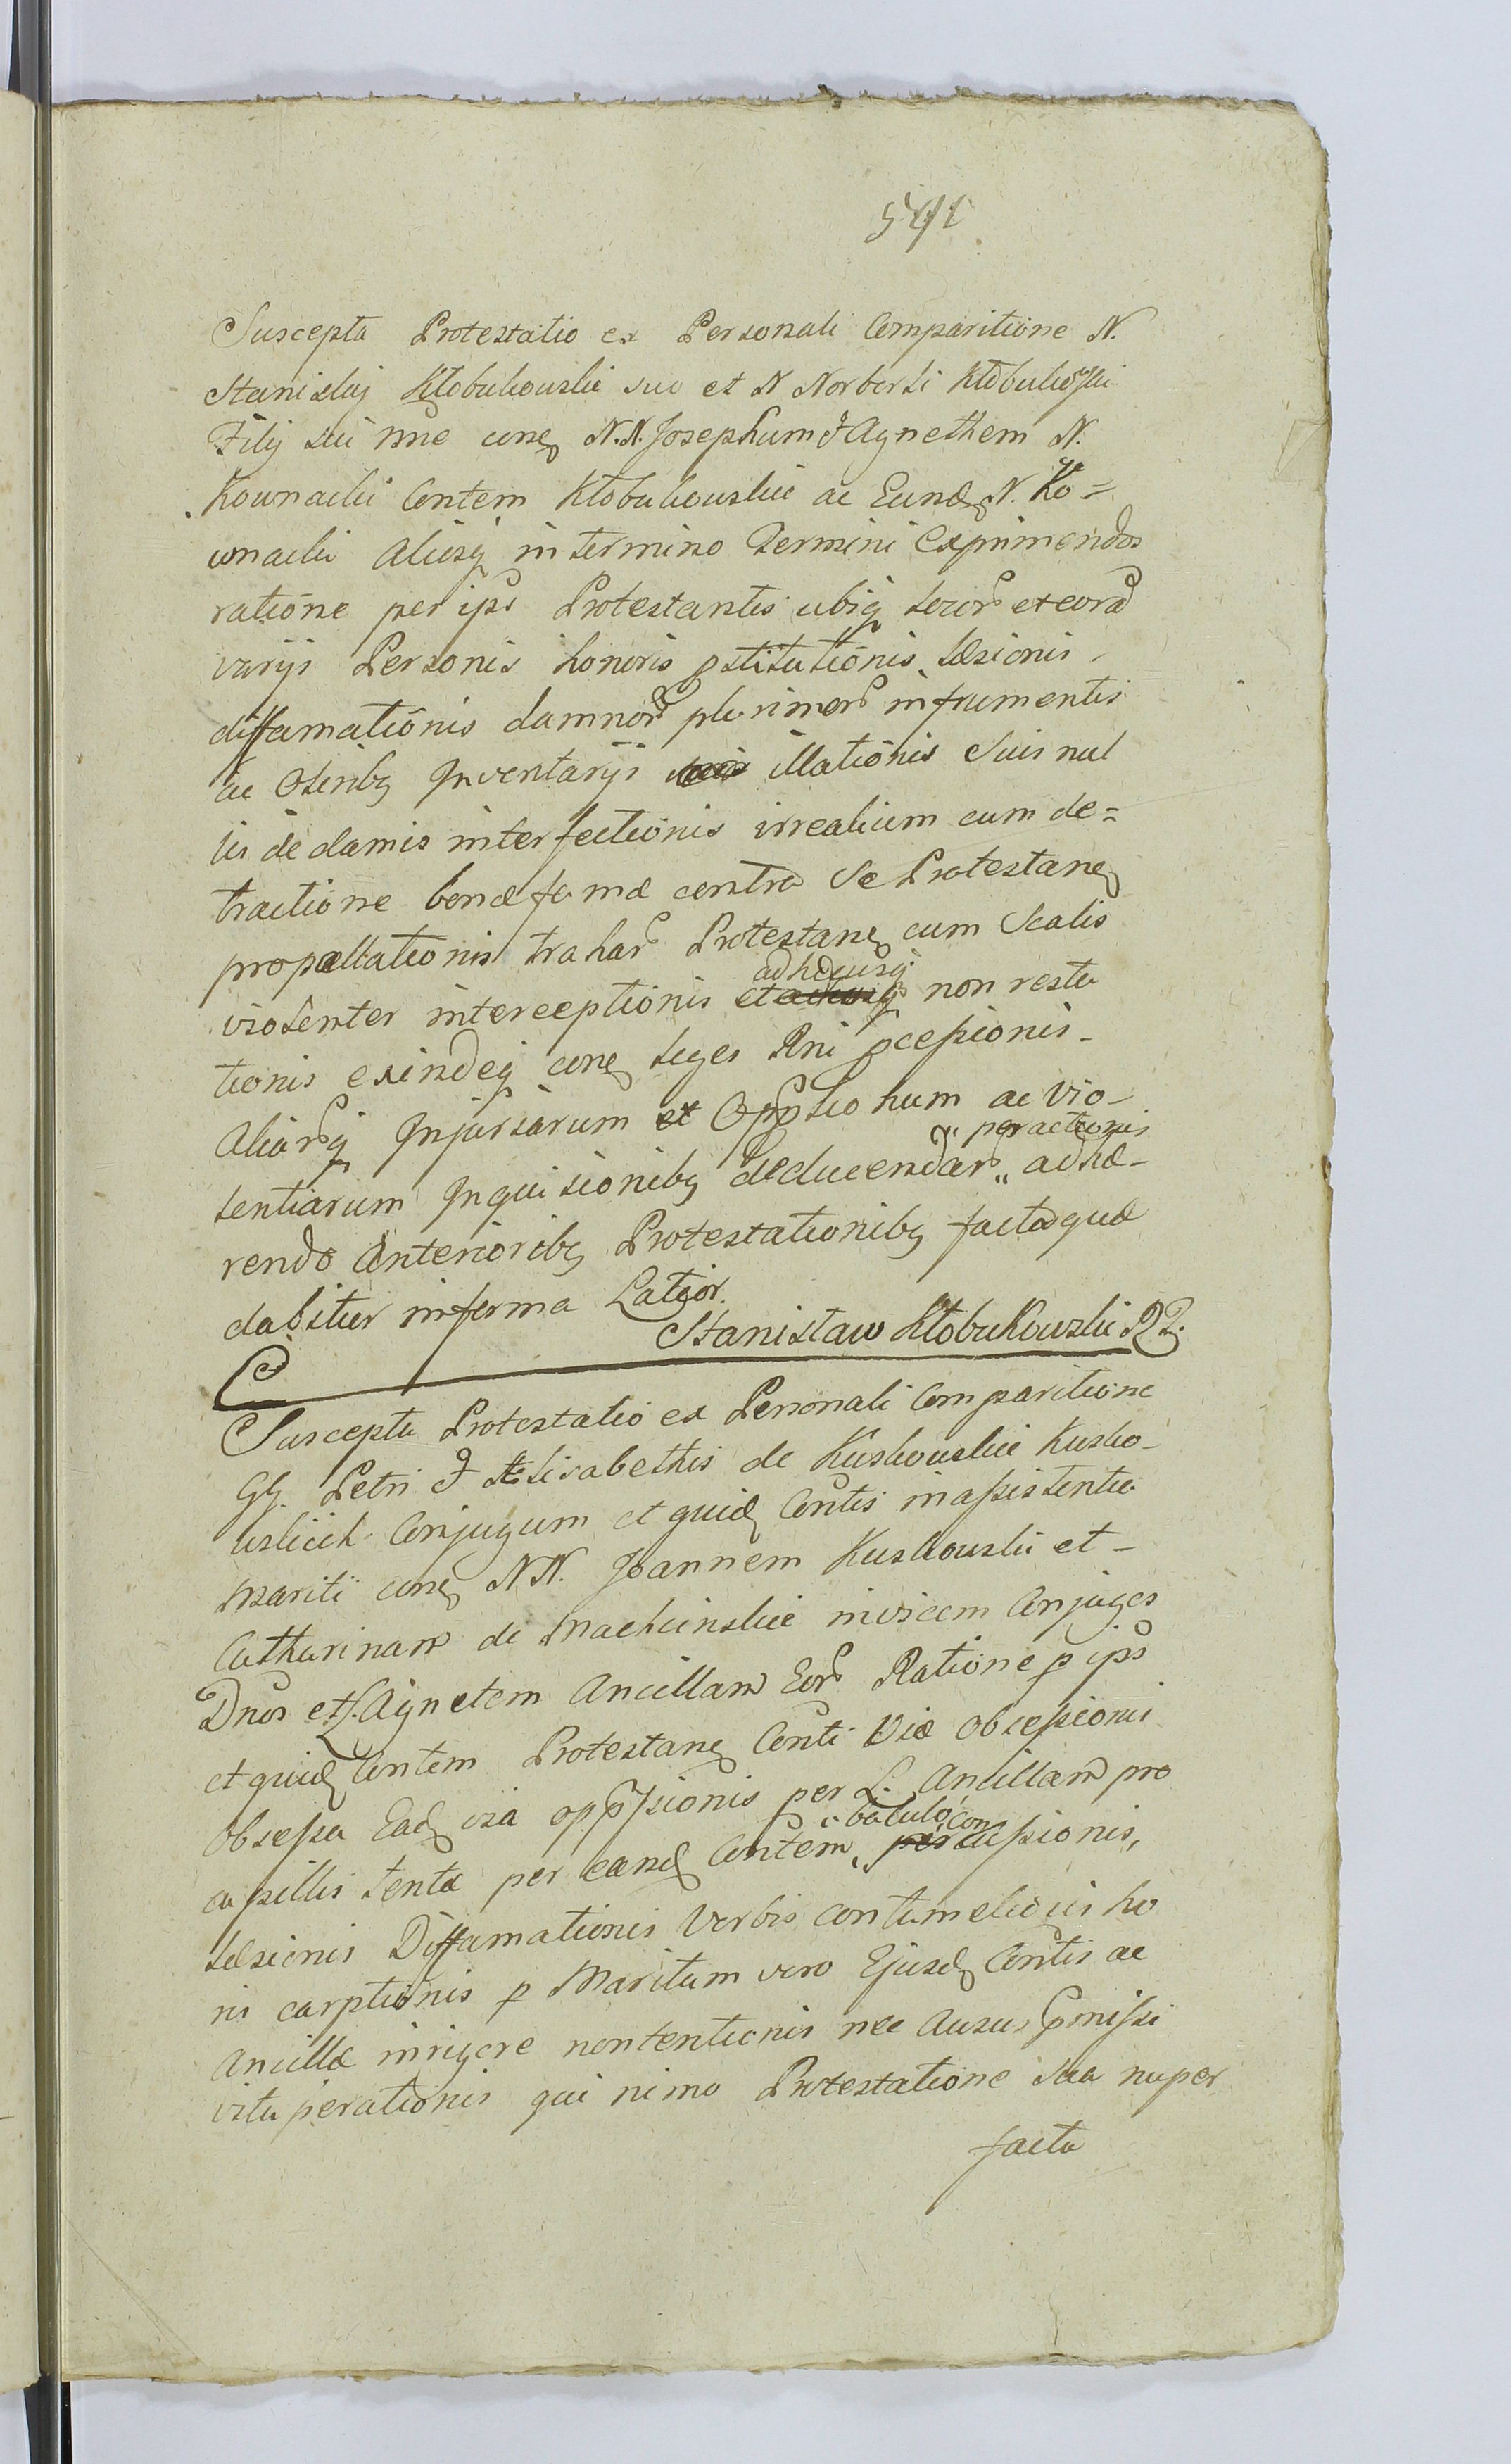 541
Suscepta Protestatio ex Personali Comparitione N.
Stanislaj Kłobukowski suo et N Norberti Kłobukowski
Filij sui nne conq N.N. Josephum & Agnethem N.
Kownacki Contem Kłobukowskie ac Eund N. Ko=
wnacki aliosq in termino Termini Exprimendos
ratione per ips Protestantis ubiq locor et cora
varijs Personis honoris pstitutionis læsionis
diffamationis damnor plurimor in frumentis
ac Oleribq Inventarijs illationis suis nul
lis de damis interfectionis irrealium cum de=
tractione bonæ famæ contra se Protestanq
propallationis trahar Protestanq cum Scalis
violenter interceptionis adhucusq non restu
tionis exindeq conq leges Rni pcessionis
Aliarq Injuriarum et Oppssionum ac vio-
lentiarum Inquisionibq deducendar „ peractionis adhæ-
rendo Anterioribq Protestationibq factaque
dabitur in forma Latior.
Stanisław Kłobukowski RP.
Suscepta Protestatio ex Personali Comparitione
GG. Petri & Elisabethis de Kuskowskie Kusko-
wskich Conjugum et quid Contis in assistentia
Mariti conq NN. Joannem Kuskowski et -
Catharinam de Machcinskie invicem Conjuges
Dnos et L. Agnetem Ancillam Eor Ratione p ips
et quid Contem Protestanq Conti viæ obsessionis
obsessa Ead via oppssionis per L. Ancillam pro
capillis tentæ per eand Contem „ baculo con cussionis,
læsionis Diffamationis Verbis contumeliosis ho
nis carptionis p Maritum vero Ejusd Contis ac
Ancillæ in rigore non tentionis nec ausus pmissi
vituperationis qui nimo Protestatione sua nuper
facta